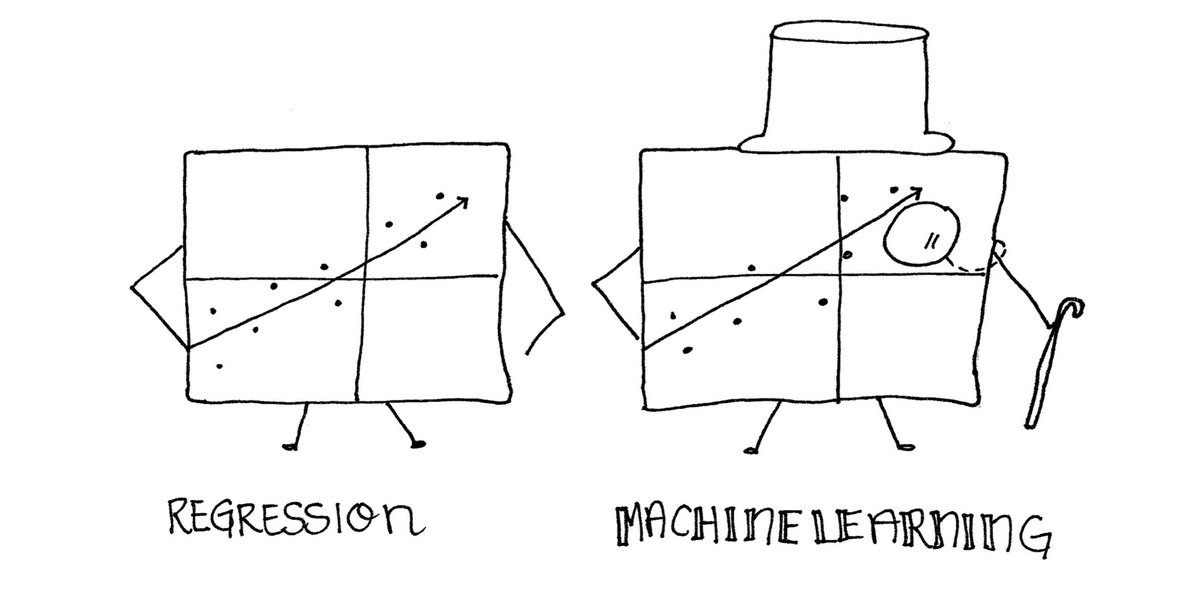 REGRESSION
MACHINE LEARNING